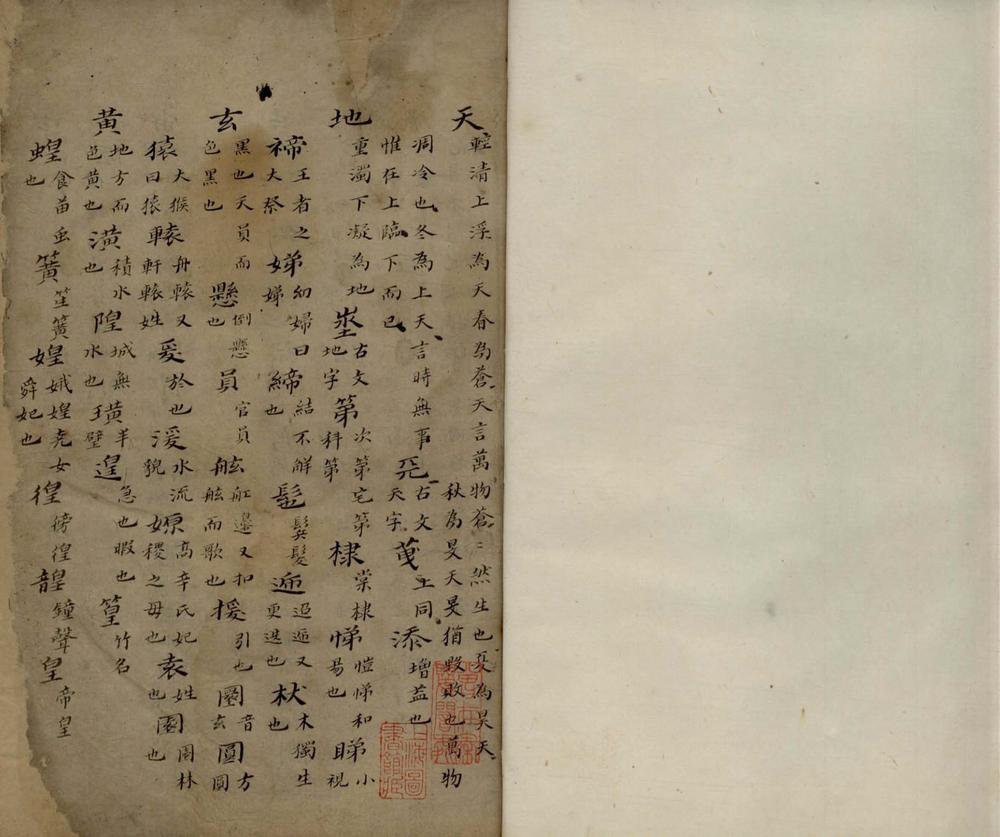 天輕清上浮為天春為蒼天言萬物蒼〻然生也夏為昊天秋為旻天旻猶毀敗也萬物
凋冷也冬為上天言時無事惟在上臨下而已兲古文天字上同添增益也
地重濁下凝為地埊古文地字第次第宅第科第棣棠棣悌愷悌和易也睇小視
禘王者之大祭娣幼婦曰娣締結不解也髢鬒髮遞迢遞又更迭也杕木獨生也
玄黑也天員而色黑也懸倒懸也員官員舷舡邊又扣舷而歌也援引也圜音玄圓方圓
猿大猴曰猿轅舟轅又軒轅姓爰於也湲水流貌嫄高辛氏妃稷之母也袁姓也園園林也
黄地方而色黄也潢積水也隍城無水也璜半璧遑急也暇也篁竹名
蝗食苗虫也簧笙簧媓娥媓堯女舜妃也徨傍徨韹鐘聲皇帝皇
上海圖書館藏